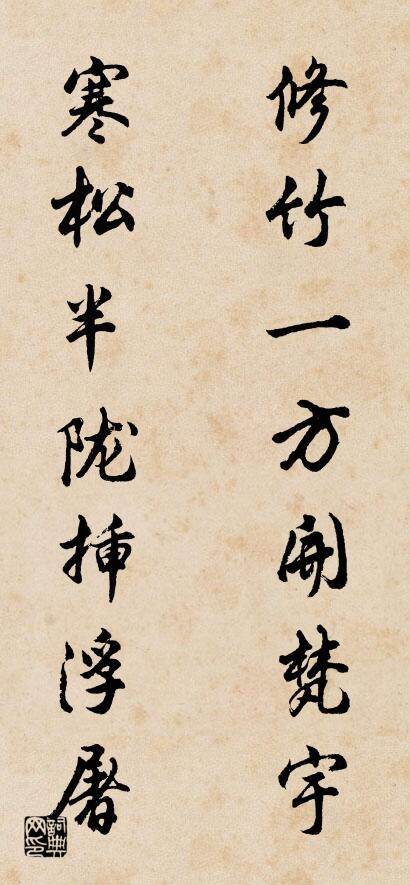 修竹一方開梵宇
寒松半陇挿浮屠
詞典
网印